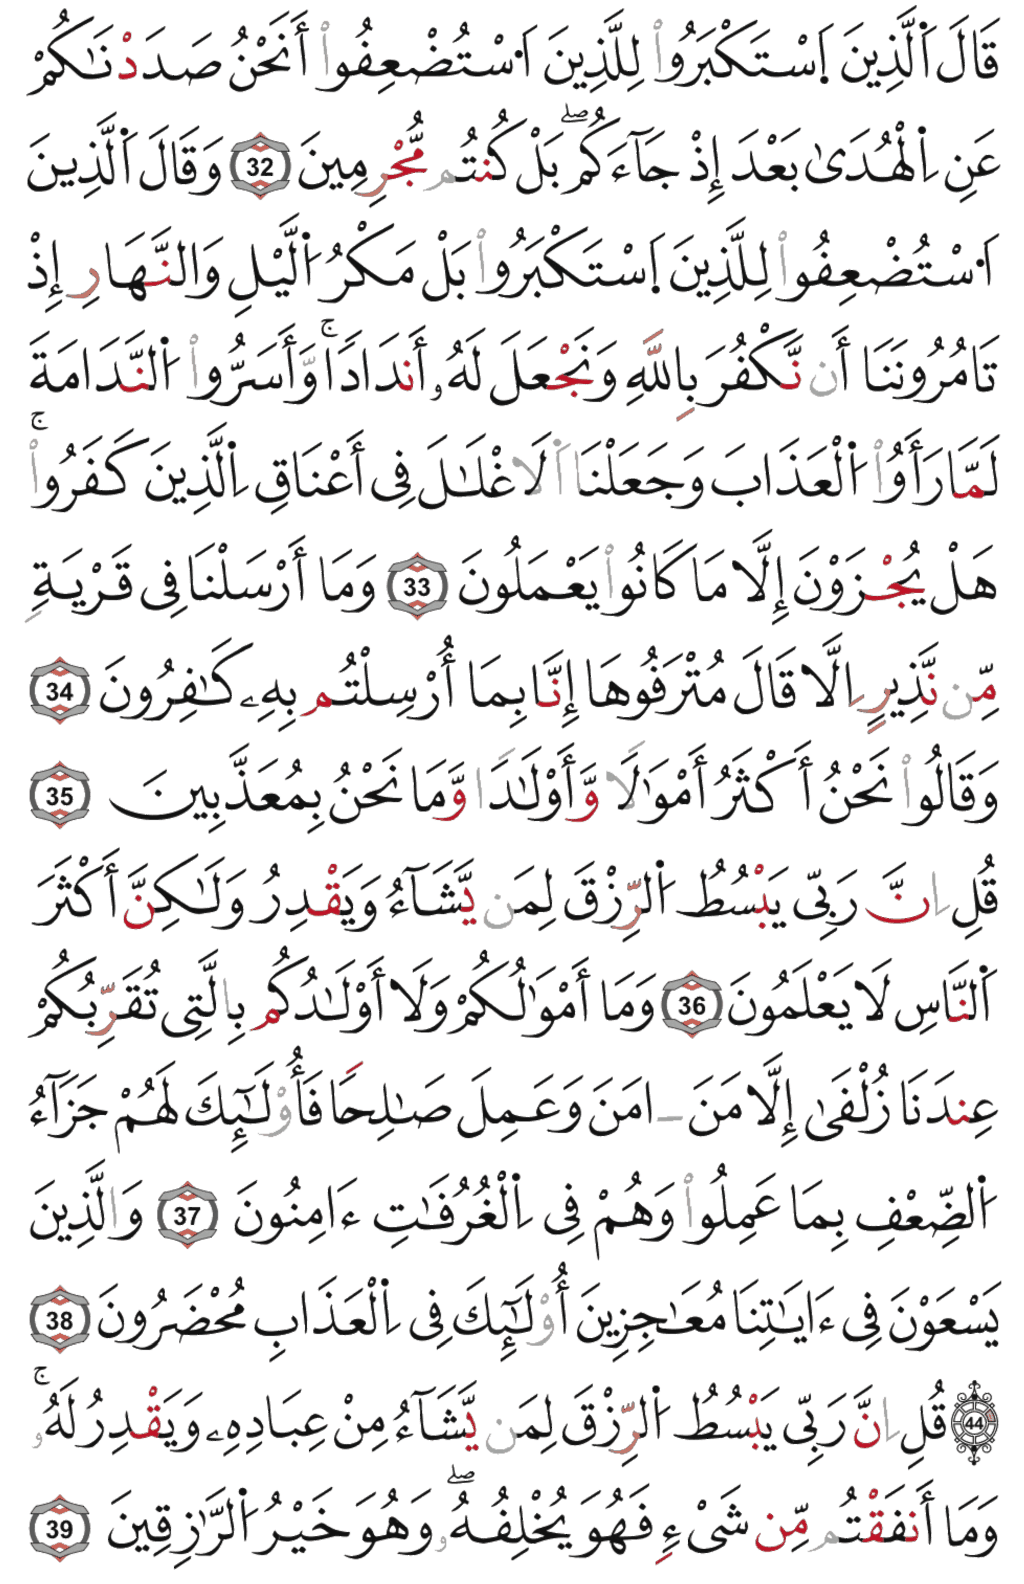 قَالَ اَ۬لذِينَ اَ۪سْتَكْبَرُواْ لِلذِينَ اَ۟سْتُضْعِفُواْ أَنَحْنُ صَدَدْنَٰكُمْ
عَنِ اِ۬لْهُدَىٰ بَعْدَ إِذْ جَآءَكُمۖ بَلْ كُنتُم مُّجْرِمِينَ 32 وَقَالَ اَ۬لذِينَ
اَ۟سْتُضْعِفُواْ لِلذِينَ اَ۪سْتَكْبَرُواْ بَلْ مَكْرُ اُ۬ليْلِ وَالنَّهَارِ إِذْ
تَامُرُونَنَا أَن نَّكْفُرَ بِاللَّهِ وَنَجْعَلَ لَهُۥ أَندَادًاۚ وَأَسَرُّواْ اُ۬لنَّدَامَةَ
لَمَّا رَأَوُاْ اُ۬لْعَذَابَ وَجَعَلْنَا اَ۬لَاغْلَٰلَ فِى أَعْنَاقِ اِ۬لذِينَ كَفَرُواْۚ
هَلْ يُجْزَوْنَ إِلَّا مَا كَانُواْ يَعْمَلُونَ 33 وَمَا أَرْسَلْنَا فِى قَرْيَةٍ
مِّن نَّذِيرٍ اِلَّا قَالَ مُتْرَفُوهَا إِنَّا بِمَا أُرْسِلْتُم بِهِۦ كَٰفِرُونَ 34
وَقَالُواْ نَحْنُ أَكْثَرُ أَمْوَٰلًا وَّأَوْلَٰدًا وَّمَا نَحْنُ بِمُعَذَّبِينَ 35
قُلِ اِنَّ رَبِّى يَبْسُطُ اُ۬لرِّزْقَ لِمَن يَّشَآءُ وَيَقْدِرُ وَلَٰكِنَّ أَكْثَرَ
اَ۬لنَّاسِ لَا يَعْلَمُونَ 36 وَمَا أَمْوَٰلُكُمْ وَلَا أَوْلَٰدُكُم بِالتِى تُقَرِّبُكُمْ
عِندَنَا زُلْفَىٰ إِلَّا مَنَ ـ امَنَ وَعَمِلَ صَٰلِحًا فَأُوْلَٰٓئِكَ لَهُمْ جَزَآءُ
اُ۬لضِّعْفِ بِمَا عَمِلُواْ وَهُمْ فِى اِ۬لْغُرُفَٰتِ ءَامِنُونَ 37 وَالذِينَ
يَسْعَوْنَ فِى ءَايَٰتِنَا مُعَٰجِزِينَ أُوْلَٰٓئِكَ فِى اِ۬لْعَذَابِ مُحْضَرُونَ 38
44 قُلِ اِنَّ رَبِّى يَبْسُطُ اُ۬لرِّزْقَ لِمَن يَّشَآءُ مِنْ عِبَادِهِۦ وَيَقْدِرُ لَهُۥۚ
وَمَا أَنفَقْتُم مِّن شَىْءٍ فَهُوَ يُخْلِفُهُۥۖ وَهُوَ خَيْرُ اُ۬لرَّٰزِقِينَ 39